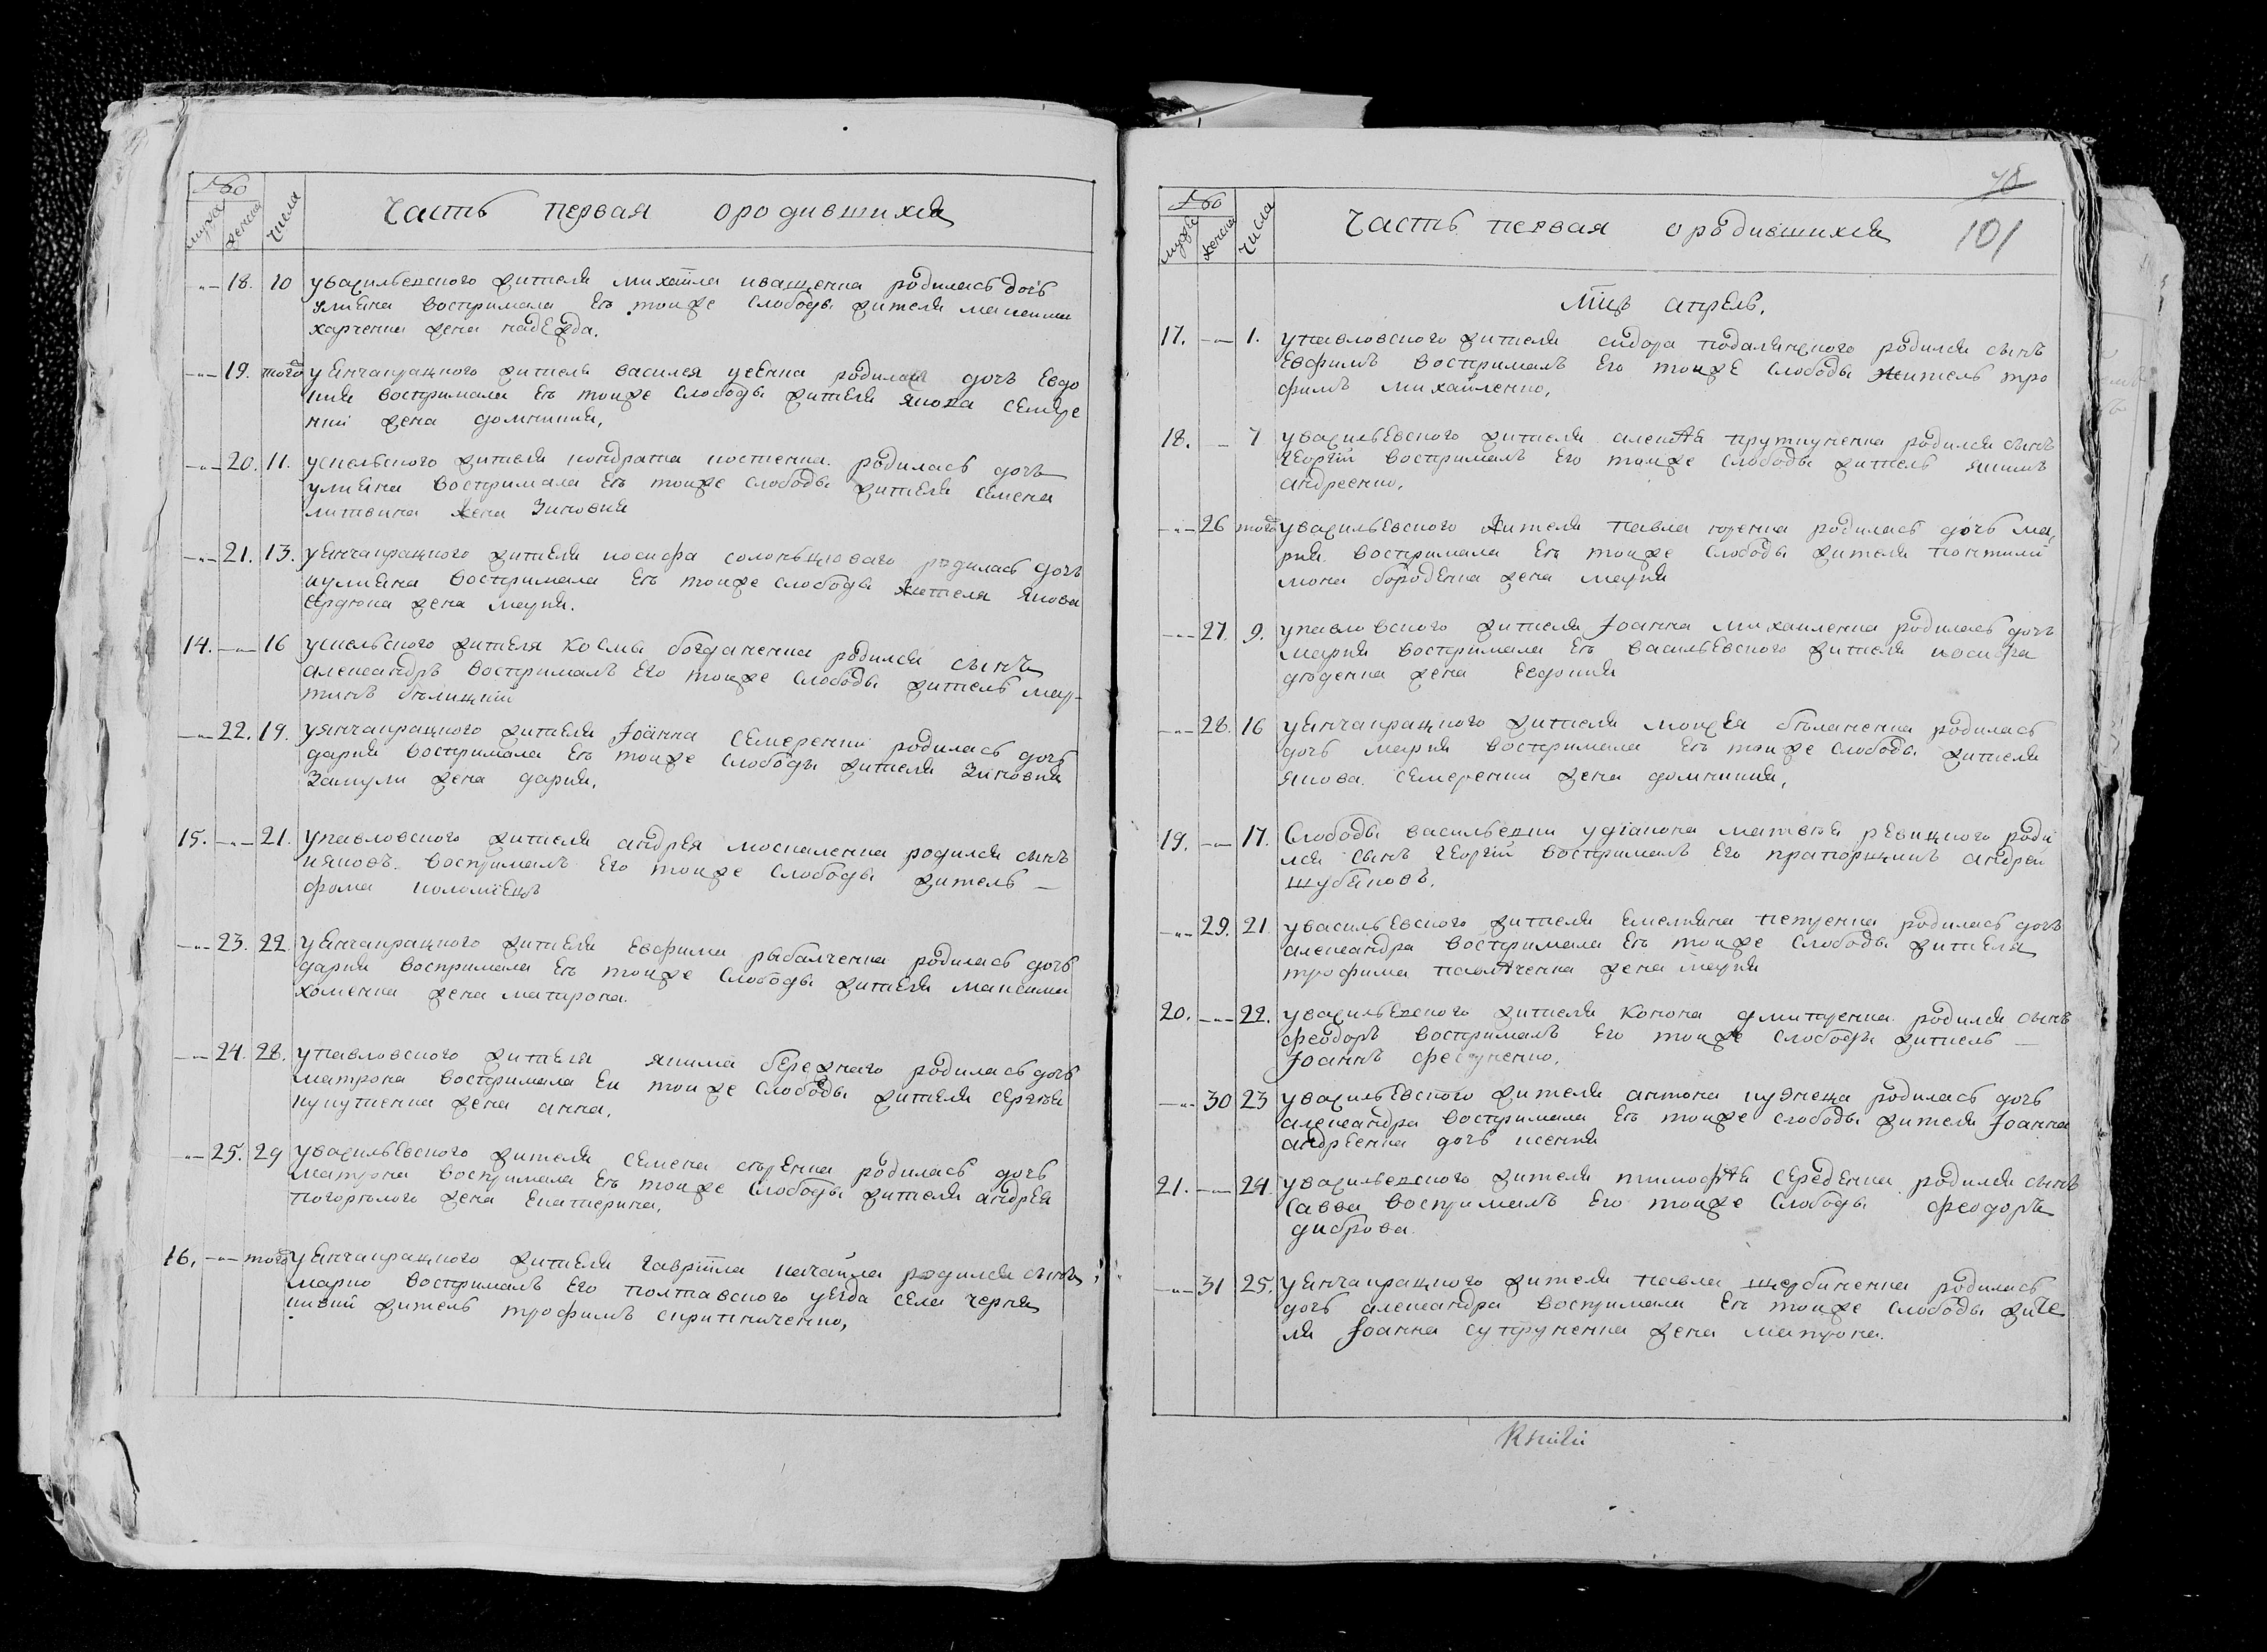 №
мужеска
женска
числа
Часть первая ородившихся
-"- 18. 10 увасильевского жителя михайла иващенка родилась дочь
улияна воспримала Еѣ тоиже слободы жителя максима
харченка жена надежда.
-"- 19. того уянчакрацкого жителя василея усенка родилась дочь Евдо
кия воспримала Еѣ тоиже слободы жителя якова семере
нки жена домникия,
-"- 20. 11. ускельского жителя кондрата костенка родилась дочь
улияна воспримала Еѣ тоиже слободы жителя семена
литвина жена Зиновия
-"- 21. 13. уянчакрацкого жителя иосифа солонцюваго родилась дочь
иулияна воспримала Еѣ тоиже слободы жителя якова
сердюка жена мария.
14. -"- 16 ускельского жителя космы богданенка родился сынъ
александръ воспрималъ Его тоиже слободы житель мар-
тинъ бѣлицкий
-"- 22. 19. уянчакрацкого жителя Іоанна Семеренки родилась дочь
дария воспримала Еѣ тоиже слободы жителя Зиновия
Замули жена дария,
15. -"- 21. упавловского жителя андрея москаленка родился сынъ
ияковъ. воспрималъ Его тоиже слободы житель —
фома коломиецъ
-"- 23. 22. уянчакрацкого жителя Евфима рыбалченка родилась дочь
дария воспримала Еѣ тоиже слободы жителя максима
хоменка жена матрона.
-"- 24. 28. упавловского жителя якима бережнаго родилась дочь
матрона воспримала Еи тоиже слободы жителя сергѣя
кукутенка жена анна,
-"- 25. 29 увасильевского жителя семена сѣренка родилась дочь
матрона воспримала Еѣ тоиже слободы жителя андрея
погорѣлого жена Екатерина,
16. -"- того уянчакрацкого жителя гавріила качайла родился сынъ
марко воспрималъ Его полтавского уѣзда села черня
кивки житель трофимъ скрипниченко,
78
101
№
мужеска
женска
числа
Часть первая ородившихся
Мцъ апрель.
17. -"- 1. упавловского жителя сидора подалинского родился сынъ
Евфимъ воспрималъ Его тоиже слободы житель тро
фимъ михайленко,
18. - 7 увасильевского жителя алексѣя прутчученка родился сынъ
георгій воспрималъ Его тоиже слободы житель якимъ
андреенко,
-"- 26 того увасильевского жителя павла юренка родилась дочь ма
рия воспримала Еѣ тоиже слободы жителя понтили
мона бороденка жена мария
-"- 27. 9. упавловского жителя Іоанна михайленка родилась дочь
мария воспримала Еѣ васильевского жителя иосифа
дюденка жена Евдокия
-"- 28. 16 уянчакрацкого жителя моисея бѣланенка родилась
дочь мария воспримала Еѣ тоиже слободы жителя
якова семеренки жена домникия,
19. -"- 17. Слободы васильевки удіакона матвѣя ревицкого роди
лся сынъ георгій воспрималъ Его прапорщикъ андрей
шубяковъ,
-"- 29. 21. увасильевского жителя Емелияна петренка родилась дочь
александра воспримала Еѣ тоиже слободы жителя
трофима павлѣченка жена мария
20. -"- 22. увасильевского жителя конона дмитренка родился сынъ
феодоръ воспрималъ Его тоиже слободы житель —
Іоаннъ фесуненко,
-"- 30 23 увасильевского жителя антона кузнеца родилась дочь
александра воспримала Еѣ тоиже слободы жителя Іоанна
андреенка дочь ксения
21. -"- 24. увасильевского жителя тимофѣя середенка родился сынъ
савва воспрималъ Его тоиже слободы феодоръ
диброва.
-"- 31 25. уянчакрацкого жителя павла щербиненка родилась
дочь александра воспримала Еѣ тоиже слободы жите
ля Іоанна супруненка жена матрона.